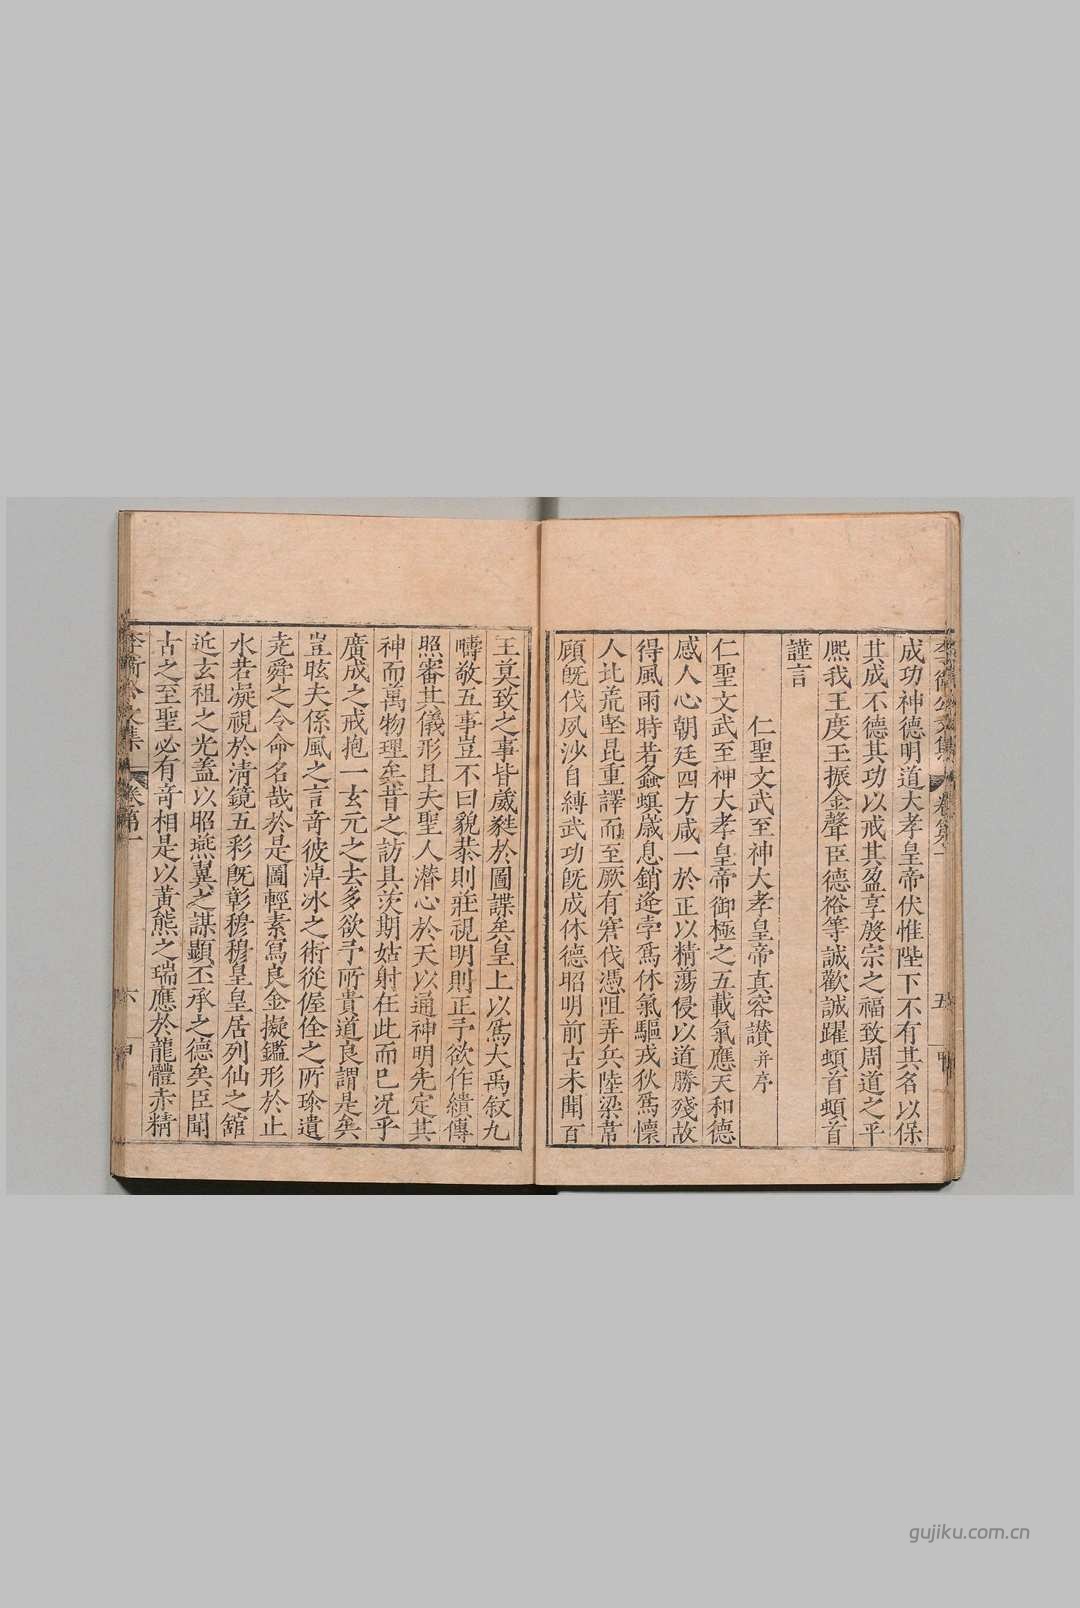 李衛公文集 卷第一 五 甲
成功神德明道大孝皇帝伏惟陛下不有其名以保
其成不德其功以戒其盈享殷宗之福致周道之平
熈我王度玉振金聲臣德裕等誠歡誠躍頓首頓首
謹言
仁聖文武至神大孝皇帝真容讃并序
仁聖文武至神大孝皇帝御極之五載氣應天和德
感人心朝廷四方咸一於正以精蕩侵以道勝殘故
得風雨時若螽螟蔵息銷逆孛爲休氣驅戎狄爲懷
人北荒堅昆重譯而至厥有窘伐憑阻弄兵陸梁
顧旣伐夙沙自縛武功旣成休德昭明前古未聞百
王莫致之事皆葳蕤於圖諜矣皇上以爲大禹叙九
疇敬五事豈不曰貌恭則莊視明則正予欲作繢傳
照審其儀形且夫聖人潜心於天以通神明先定其
神而萬物理矣昔之訪具茨期姑射在此而已况乎
廣成之戒抱一玄元之去多欲予所貴道良謂是矣
豈眩夫係風之言竒彼淖冰之術從偓佺之所珎遺
尭舜之令命名哉於是圖輕素寫良金擬鑑形於止
水若凝視於清鏡五彩旣彰穆穆皇皇居列仙之舘
近玄祖之光盖以昭燕翼之謀顯丕承之德矣臣聞
古之至聖必有竒相是以黃熊之瑞應於龍體赤精
李衛公文集 卷第一 六 甲
gujiku.com.cn